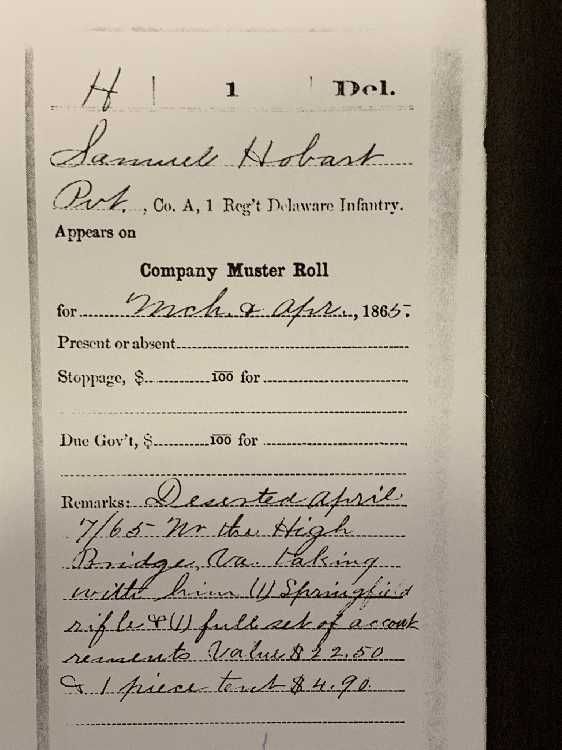 H | 1 | Del.
Samuel Hobart
Pvt., Co. A, 1 Reg't Delaware Infantry.
Appears on
Company Muster Roll
for Mch. & Apr., 1865.
Present or absent
Stoppage, $ 100 for
Due Gov't, $ 100 for
Remarks: Deserted April
7/65 Nr the High
Bridge, Va. taking
with him (1) Springfield
rifle & (1) full set of accout
rements Value $22.50
& 1 piece tent $4.90